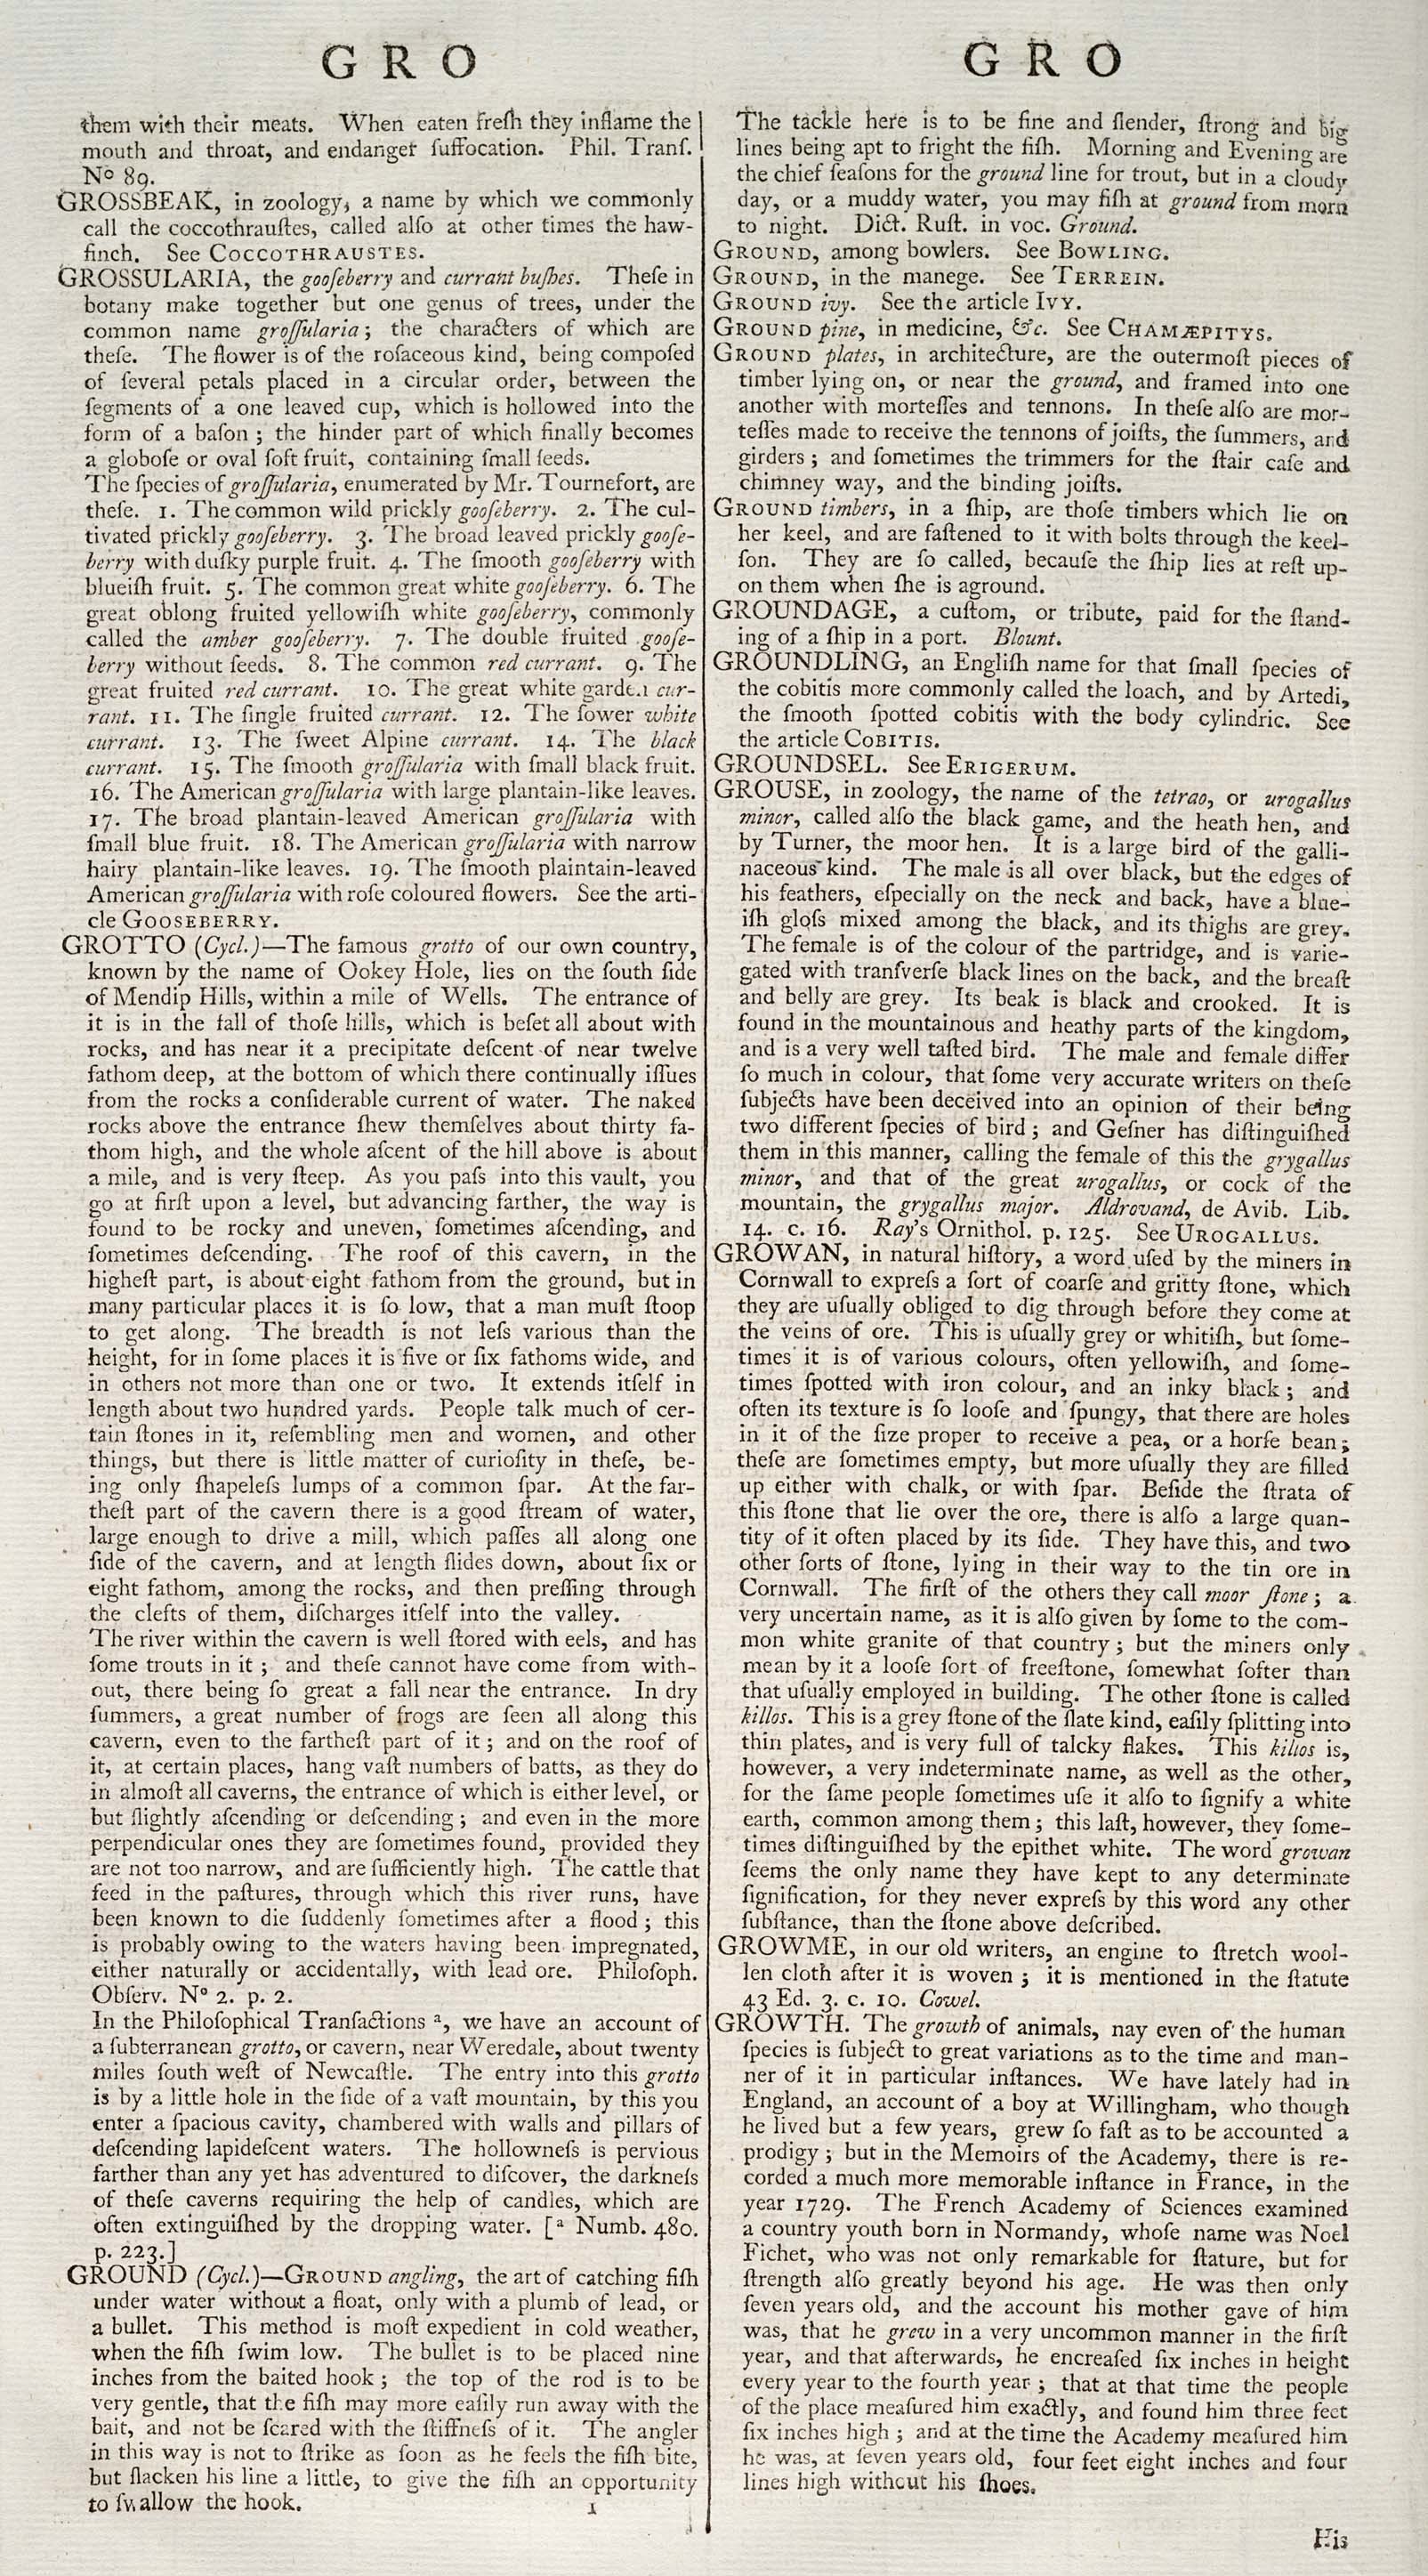 G R O
them with their meats. When eaten freſh they inflame the
mouth and throat, and endanger ſuffocation. Phil. Tranſ.
Nº 89.
GROSSBEAK, in zoology, a name by which we commonly
call the coccothrauſtes, called alſo at other times the haw-
finch. See COCCOTHRAUSTES.
GROSSULARIA, the gooſeberry and currant buſhes. Theſe in
botany make together but one genus of trees, under the
common name groſſularia; the characters of which are
theſe. The flower is of the roſaceous kind, being compoſed
of ſeveral petals placed in a circular order, between the
ſegments of a one leaved cup, which is hollowed into the
form of a baſon; the hinder part of which finally becomes
a globoſe or oval ſoft fruit, containing ſmall ſeeds.
The ſpecies of groſſularia, enumerated by Mr. Tournefort, are
theſe. 1. The common wild prickly gooſeberry. 2. The cul-
tivated prickly gooſeberry. 3. The broad leaved prickly gooſe-
berry with duſky purple fruit. 4. The ſmooth gooſeberry with
blueiſh fruit. 5. The common great white gooſeberry. 6. The
great oblong fruited yellowiſh white gooſeberry, commonly
called the amber gooſeberry. 7. The double fruited gooſe-
berry without ſeeds. 8. The common red currant. 9. The
great fruited red currant. 10. The great white garden cur-
rant. 11. The ſingle fruited currant. 12. The ſower white
currant. 13. The ſweet Alpine currant. 14. The black
currant. 15. The ſmooth groſſularia with ſmall black fruit.
16. The American groſſularia with large plantain-like leaves.
17. The broad plantain-leaved American groſſularia with
ſmall blue fruit. 18. The American groſſularia with narrow
hairy plantain-like leaves. 19. The ſmooth plaintain-leaved
American groſſularia with roſe coloured flowers. See the arti-
cle GOOSEBERRY.
GROTTO (Cycl.)—The famous grotto of our own country,
known by the name of Ookey Hole, lies on the ſouth ſide
of Mendip Hills, within a mile of Wells. The entrance of
it is in the fall of thoſe hills, which is beſet all about with
rocks, and has near it a precipitate deſcent of near twelve
fathom deep, at the bottom of which there continually iſſues
from the rocks a conſiderable current of water. The naked
rocks above the entrance ſhew themſelves about thirty fa-
thom high, and the whole aſcent of the hill above is about
a mile, and is very ſteep. As you paſs into this vault, you
go at firſt upon a level, but advancing farther, the way is
found to be rocky and uneven, ſometimes aſcending, and
ſometimes deſcending. The roof of this cavern, in the
higheſt part, is about eight fathom from the ground, but in
many particular places it is ſo low, that a man muſt ſtoop
to get along. The breadth is not leſs various than the
height, for in ſome places it is five or ſix fathoms wide, and
in others not more than one or two. It extends itſelf in
length about two hundred yards. People talk much of cer-
tain ſtones in it, reſembling men and women, and other
things, but there is little matter of curioſity in theſe, be-
ing only ſhapeleſs lumps of a common ſpar. At the far-
theſt part of the cavern there is a good ſtream of water,
large enough to drive a mill, which paſſes all along one
ſide of the cavern, and at length ſlides down, about ſix or
eight fathom, among the rocks, and then preſſing through
the clefts of them, diſcharges itſelf into the valley.
The river within the cavern is well ſtored with eels, and has
ſome trouts in it; and theſe cannot have come from with-
out, there being ſo great a fall near the entrance. In dry
ſummers, a great number of frogs are ſeen all along this
cavern, even to the fartheſt part of it; and on the roof of
it, at certain places, hang vaſt numbers of batts, as they do
in almoſt all caverns, the entrance of which is either level, or
but ſlightly aſcending or deſcending; and even in the more
perpendicular ones they are ſometimes found, provided they
are not too narrow, and are ſufficiently high. The cattle that
feed in the paſtures, through which this river runs, have
been known to die ſuddenly ſometimes after a flood; this
is probably owing to the waters having been impregnated,
either naturally or accidentally, with lead ore. Philoſoph.
Obſerv. Nº 2. p. 2.
In the Philoſophical Tranſactions ª, we have an account of
a ſubterranean grotto, or cavern, near Weredale, about twenty
miles ſouth weſt of Newcaſtle. The entry into this grotto
is by a little hole in the ſide of a vaſt mountain, by this you
enter a ſpacious cavity, chambered with walls and pillars of
deſcending lapideſcent waters. The hollowneſs is pervious
farther than any yet has adventured to diſcover, the darkneſs
of theſe caverns requiring the help of candles, which are
often extinguiſhed by the dropping water. [ª Numb. 480.
p. 223.]
GROUND (Cycl.)—GROUND angling, the art of catching fiſh
under water without a float, only with a plumb of lead, or
a bullet. This method is moſt expedient in cold weather,
when the fiſh ſwim low. The bullet is to be placed nine
inches from the baited hook; the top of the rod is to be
very gentle, that the fiſh may more eaſily run away with the
bait, and not be ſcared with the ſtiffneſs of it. The angler
in this way is not to ſtrike as ſoon as he feels the fiſh bite,
but ſlacken his line a little, to give the fiſh an opportunity
to ſwallow the hook.
1
G R O
The tackle here is to be fine and ſlender, ſtrong and big
lines being apt to fright the fiſh. Morning and Evening are
the chief ſeaſons for the ground line for trout, but in a cloudy
day, or a muddy water, you may fiſh at ground from morn
to night. Dict. Ruſt. in voc. Ground.
GROUND, among bowlers. See BOWLING.
GROUND, in the manege. See TERREIN.
GROUND ivy. See the article IVY.
GROUND pine, in medicine, &c. See CHAMÆPITYS.
GROUND plates, in architecture, are the outermoſt pieces of
timber lying on, or near the ground, and framed into one
another with morteſſes and tennons. In theſe alſo are mor-
teſſes made to receive the tennons of joiſts, the ſummers, and
girders; and ſometimes the trimmers for the ſtair caſe and
chimney way, and the binding joiſts.
GROUND timbers, in a ſhip, are thoſe timbers which lie on
her keel, and are faſtened to it with bolts through the keel-
ſon. They are ſo called, becauſe the ſhip lies at reſt up-
on them when ſhe is aground.
GROUNDAGE, a cuſtom, or tribute, paid for the ſtand-
ing of a ſhip in a port. Blount.
GROUNDLING, an Engliſh name for that ſmall ſpecies of
the cobitis more commonly called the loach, and by Artedi,
the ſmooth ſpotted cobitis with the body cylindric. See
the article COBITIS.
GROUNDSEL. See ERIGERUM.
GROUSE, in zoology, the name of the tetrao, or urogallus
minor, called alſo the black game, and the heath hen, and
by Turner, the moor hen. It is a large bird of the galli-
naceous kind. The male is all over black, but the edges of
his feathers, eſpecially on the neck and back, have a blue-
iſh gloſs mixed among the black, and its thighs are grey.
The female is of the colour of the partridge, and is varie-
gated with tranſverſe black lines on the back, and the breaſt
and belly are grey. Its beak is black and crooked. It is
found in the mountainous and heathy parts of the kingdom,
and is a very well taſted bird. The male and female differ
ſo much in colour, that ſome very accurate writers on theſe
ſubjects have been deceived into an opinion of their being
two different ſpecies of bird; and Geſner has diſtinguiſhed
them in this manner, calling the female of this the grygallus
minor, and that of the great urogallus, or cock of the
mountain, the grygallus major. Aldrovand, de Avib. Lib.
14. c. 16. Ray's Ornithol. p. 125. See UROGALLUS.
GROWAN, in natural hiſtory, a word uſed by the miners in
Cornwall to expreſs a ſort of coarſe and gritty ſtone, which
they are uſually obliged to dig through before they come at
the veins of ore. This is uſually grey or whitiſh, but ſome-
times it is of various colours, often yellowiſh, and ſome-
times ſpotted with iron colour, and an inky black; and
often its texture is ſo looſe and ſpungy, that there are holes
in it of the ſize proper to receive a pea, or a horſe bean;
theſe are ſometimes empty, but more uſually they are filled
up either with chalk, or with ſpar. Beſide the ſtrata of
this ſtone that lie over the ore, there is alſo a large quan-
tity of it often placed by its ſide. They have this, and two
other ſorts of ſtone, lying in their way to the tin ore in
Cornwall. The firſt of the others they call moor ſtone; a
very uncertain name, as it is alſo given by ſome to the com-
mon white granite of that country; but the miners only
mean by it a looſe ſort of freeſtone, ſomewhat ſofter than
that uſually employed in building. The other ſtone is called
killos. This is a grey ſtone of the ſlate kind, eaſily ſplitting into
thin plates, and is very full of talcky flakes. This killos is,
however, a very indeterminate name, as well as the other,
for the ſame people ſometimes uſe it alſo to ſignify a white
earth, common among them; this laſt, however, they ſome-
times diſtinguiſhed by the epithet white. The word growan
ſeems the only name they have kept to any determinate
ſignification, for they never expreſs by this word any other
ſubſtance, than the ſtone above deſcribed.
GROWME, in our old writers, an engine to ſtretch wool-
len cloth after it is woven; it is mentioned in the ſtatute
43 Ed. 3. c. 10. Cowel.
GROWTH. The growth of animals, nay even of the human
ſpecies is ſubject to great variations as to the time and man-
ner of it in particular inſtances. We have lately had in
England, an account of a boy at Willingham, who though
he lived but a few years, grew ſo faſt as to be accounted a
prodigy; but in the Memoirs of the Academy, there is re-
corded a much more memorable inſtance in France, in the
year 1729. The French Academy of Sciences examined
a country youth born in Normandy, whoſe name was Noel
Fichet, who was not only remarkable for ſtature, but for
ſtrength alſo greatly beyond his age. He was then only
ſeven years old, and the account his mother gave of him
was, that he grew in a very uncommon manner in the firſt
year, and that afterwards, he encreaſed ſix inches in height
every year to the fourth year; that at that time the people
of the place meaſured him exactly, and found him three feet
ſix inches high; and at the time the Academy meaſured him
he was, at ſeven years old, four feet eight inches and four
lines high without his ſhoes.
His